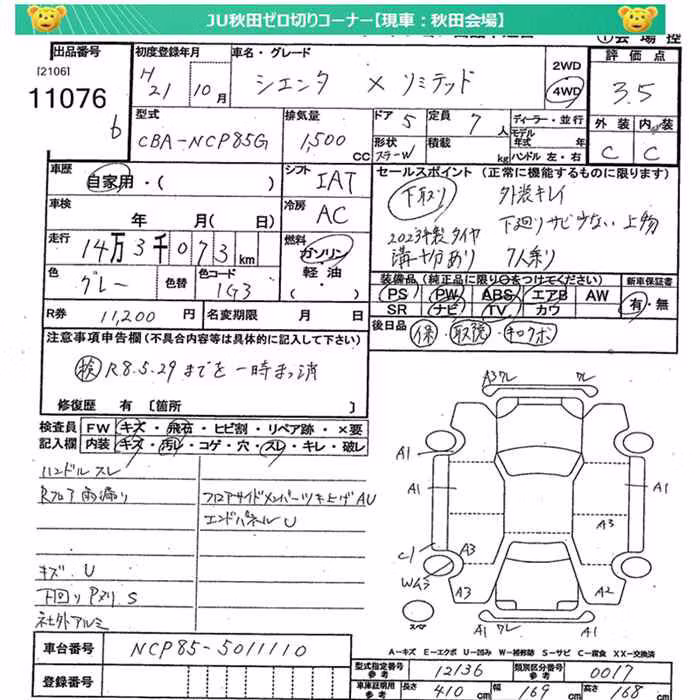 JU秋田ゼロ切りコーナー【現車：秋田会場】
出品番号
[2106]
11076
6
初度登録年月
H21 10月
車名・グレード
シエンタ X リミテッド
2WD
4WD
評価点
3.5
型式
CBA-NCP85G
排気量
1,500 CC
ドア 5
定員 7人
形状
ステーW
積載 kg
ディーラー・並行
モデル年式 年
ハンドル 左・右
外装 内装
C C
車歴
自家用・( )
車検
年 月( 日)
走行
14万3千073km
色
グレー
色替
色コード
1G3
シフト IAT
冷房 AC
燃料
ガソリン
軽油
( )
セールスポイント (正常に機能するものに限ります)
下取り 外装キレイ
下廻りサビ少ない上物
2023年製タイヤ
溝十分あり 7人乗り
装備品 (純正品に限り○をつけてください)
PS PW ABS エアB AW
SR ナビ TV カワ
新車保証書
有・無
後日品 保・取説・キロクボ
R券 11,200円
名変期限 月 日
注意事項申告欄(不具合内容等は具体的に記入して下さい)
検 R8.5.29までを一時まっ消
修復歴 有 〔箇所 〕
検査員記入欄
FW キズ・飛石・ヒビ割・リペア跡・×要
内装 キズ・汚れ・コゲ・穴・スレ・キレ・破レ
ハンドルスレ
Rフロア雨漏り
フロアサイドメンバーツキ上ゲAU
エンドパネルU
キズ、U
下回りPヌリ S
社外アルミ
A3ワレ ワレ
A1
A1
A1
A1
A3
C1
A3
W43
A3
A2
スペア
A1 ワレ A1
A-キズ E-エクボ U-凹み W-補修跡 S-サビ C-腐食 XX-交換済
車台番号 NCP85-5011110
登録番号
型式指定番号 参考 12136
類別区分番号 参考 0017
車庫証明用 参考 長さ 410cm 幅 169cm 高さ 168cm